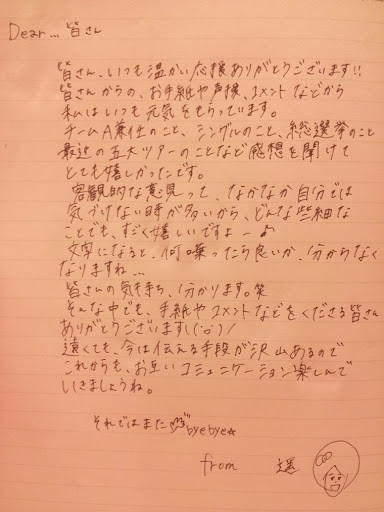 Dear... 皆さん
皆さん、いつも温かい応援ありがとうございます!!
皆さんからの、お手紙や声援、コメントなどから
私はいつも元気をもらっています。
チームA兼任のこと、シングルのこと、総選挙のこと
最近の五大ツアーのことなど感想を聞けて
とても嬉しかったです。
客観的な意見って、なかなか自分では
気づけない時が多いから、どんな些細な
ことでも、すごく嬉しいですよー♪
文字になると、何喋ったら良いか、分からなく
なりますね...
皆さんの気持ち、分かります。笑
そんな中でも、手紙やコメントなどをくださる皆さん
ありがとうございます\(^o^)/
遠くても、今は伝える手段が沢山あるので
これからも、お互いコミュニケーション楽しんで
いきましょうね。
それではまた byebye☆
from 遥